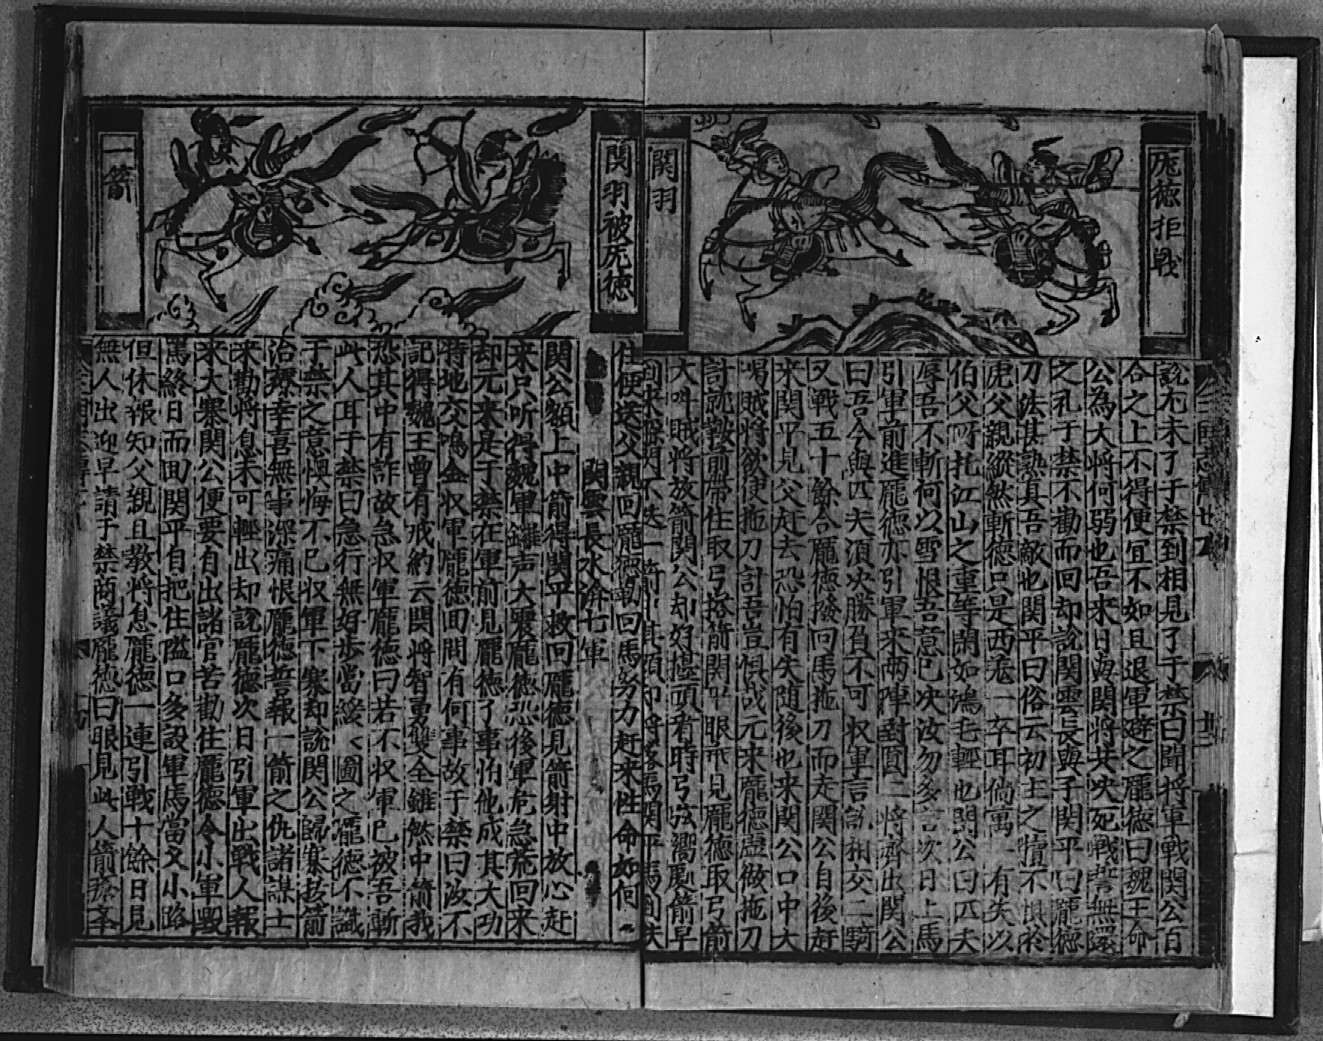 厐德拒戰
関羽
説尤未了于禁到相見了于禁曰聞将軍戦関公百
合之上不得便宜不如且退軍避之龐德曰魏王命
公為大将何弱也吾來日與関将共决死戦誓無還
之礼于禁不勸而回却說関雲長與子関平曰龐德
刀法甚熟真吾敵也関平曰俗云初生之犢不惧於
虎父親縱然斬德只是西羗一卒耳倘寓有失以
伯父所托江山之重等閑如鴻毛輕也関公曰匹夫
辱吾不斬何以雪恨吾意已决汝勿多言次日上馬
引軍前進龐德亦引軍來兩陣對圓二将齊出関公
曰吾今與匹夫須决勝負不可収軍言訖相交二騎
又戦五十餘合龐德撥回馬拖刀而走関公自後赶
來関平見父赶去恐怕有失随後也来関公口中大
喝賊将欲使拖刀計吾豈惧哉元來龐德虚做拖刀
計就鞍前帶住取弓搭箭関平眼快見龐德取弓箭
大叫賊将放箭関公却好擡頭看時弓弦響處箭早
到來躲閃不迭一箭
関羽被厐德
一箭
住便送父親回龐德勒回馬努力赶来性命如何
関雲長水渰七軍
関公額上中箭得関平救回龐德見箭射中放心赶
来只听得魏軍鑼声大震龐德恐後軍危急荒回来
却元来是于禁在軍前見龐德了事怕他成其大功
特地交鳴金収軍龐德回問有何事故于禁曰汝不
記得魏王曽有戒約云関将智勇雙全雖然中箭我
恐其中有詐故急収軍龐德曰若不収軍已被吾斬
此人耳于禁曰急行無好歩當緩〻圖之龐德不識
于禁之意懊悔不已収軍下寨却說関公歸寨拔箭
治療幸喜無事深痛恨龐德誓報一箭之仇諸謀士
来勸将息未可輕出却說龐德次日引軍出戦人報
来大寨関公便要自出諸官苦勸住龐德令小軍毀
罵終日而回関平自把住隘口多設軍馬當文小路
但休報知父親且教将息龐德一連引戦十餘日見
無人出迎早請于禁商議龐德曰眼見此人箭瘡